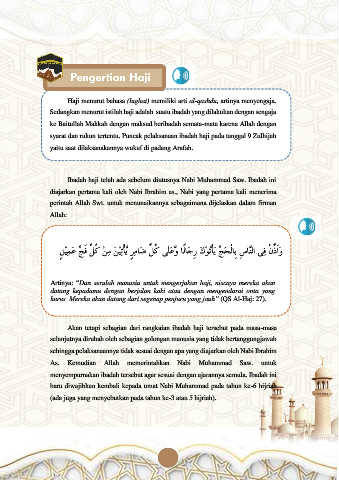 Pengertian Haji
Haji menurut bahasa (lughat) memiliki arti al-qashdu, artinya menyengaja.
Sedangkan menurut istilah haji adalah suatu ibadah yang dilakukan dengan sengaja
ke Baitullah Makkah dengan maksud beribadah semata-mata karena Allah dengan
syarat dan rukun tertentu. Puncak pelaksanaan ibadah haji pada tanggal 9 Zulhijah
yaitu saat dilaksanakannya wukuf di padang Arafah.
Ibadah haji telah ada sebelum diutusnya Nabi Muhammad Saw. Ibadah ini
diajarkan pertama kali oleh Nabi Ibrahim as., Nabi yang pertama kali menerima
perintah Allah Swt. untuk menunaikannya sebagaimana dijelaskan dalam firman
Allah:
وَاَذِّنْ فِى النَّاسِ بِالْحَجِّ يَأْتُوْكَ رِجَالًا وَّعَلٰى كُلِّ ضَامِرٍ يَّأْتِيْنَ مِنْ كُلِّ فَجٍّ عَمِيْقٍ
Artinya: "Dan serulah manusia untuk mengerjakan haji, niscaya mereka akan
datang kepadamu dengan berjalan kaki atau dengan mengendarai onta yang
kurus Mereka akan datang dari segenap penjuru yang jauh" (QS Al-Haj: 27).
Akan tetapi sebagian dari rangkaian ibadah haji tersebut pada masa-masa
selanjutnya dirubah oleh sebagian golongan manusia yang tidak bertanggungjawab
sehingga pelaksanaannya tidak sesuai dengan apa yang diajarkan oleh Nabi Ibrahim
As. Kemudian Allah memerintahkan Nabi Muhammad Saw. untuk
menyempurnakan ibadah tersebut agar sesuai dengan ajarannya semula. Ibadah ini
baru diwajibkan kembali kepada umat Nabi Muhammad pada tahun ke-6 hijriah
(ada juga yang menyebutkan pada tahun ke-3 atau 5 hijriah).